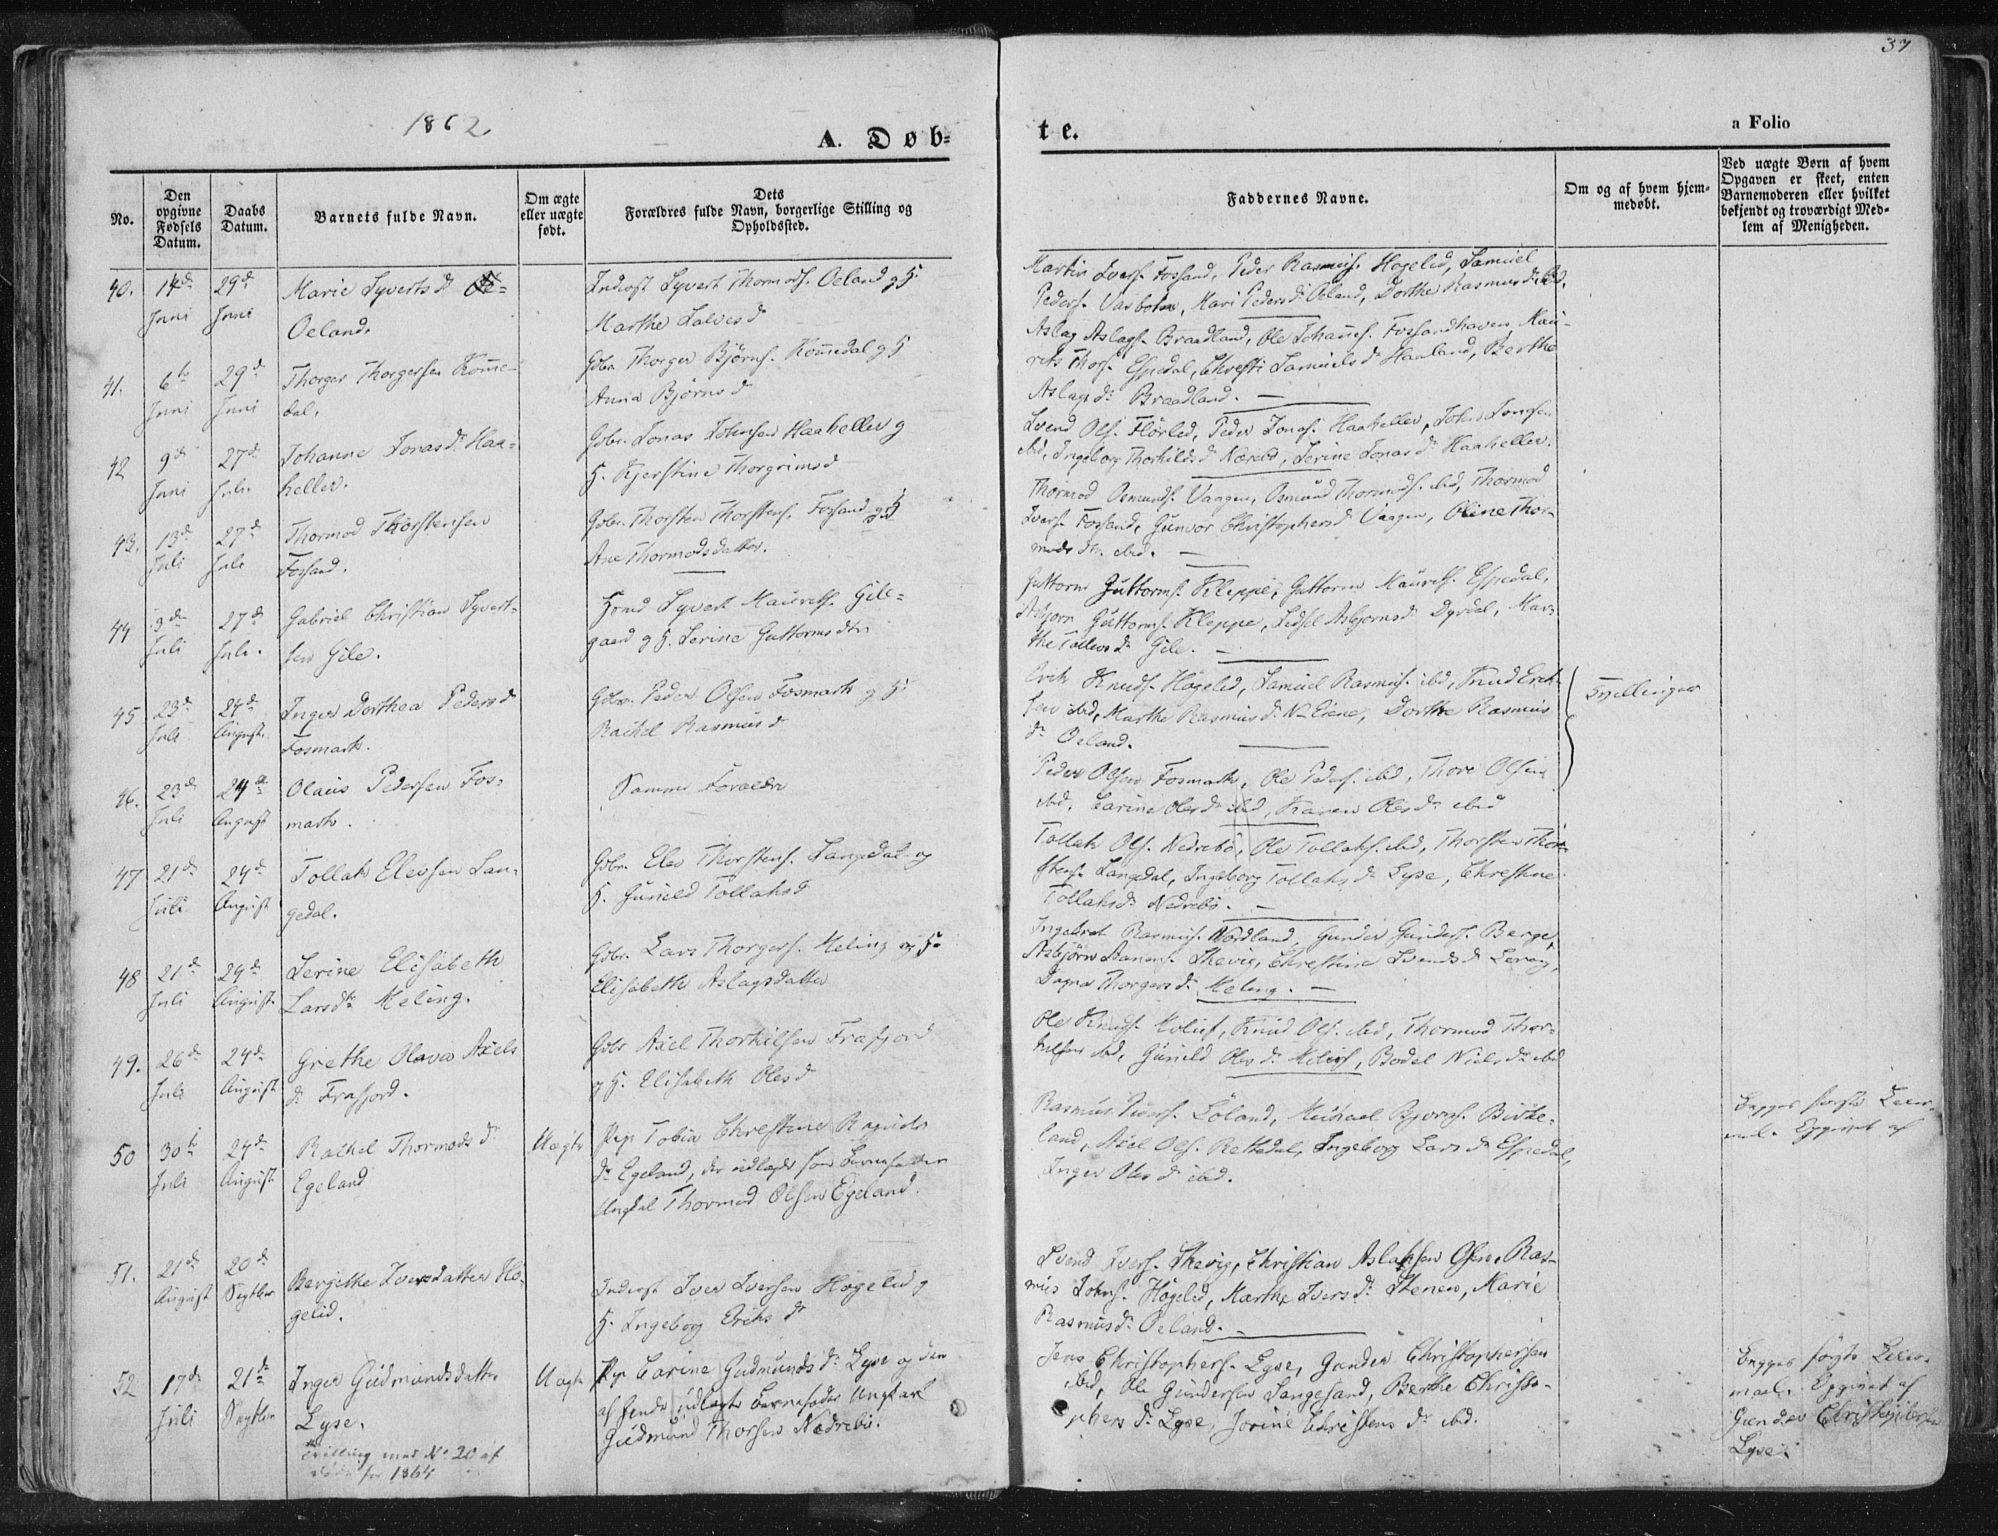 37
1862.
A. Døb-
te.
a Folio
No.
Den
opgivne
Fødsels
Datum.
Daabs
Datum.
Barnets fulde Navn.
Om ægte
eller uægte
født.
Dets
Forældres fulde Navn, borgerlige Stilling og
Opholdssted.
Faddernes Navne.
Om og af hvem hjem-
medøbt.
Ved uægte Børn af hvem
Opgaven er skeet, enten
Barnemoderen eller hvilket
bekjendt og troværdigt Med-
lem af Menigheden.
40.
14de
Juni
29de
Juni
Marie Syvertsdr
Oeland.
Inderst Syvert Thormods. Oeland og H.
Marthe Lalvesd
Martin Ivers. Fossand, Peder Rasmus. Høgelid, Samuel
Peders. Vasbotn, Mari Pedersdr Oeland, Dorthe Rasmusdr ibd.
41.
6te
Juni
29de
Juni
Thorger Thorgersen Komme-
dal.
Gbr. Thorger Bjørns. Kommedal og H
Anna Bjørnsd
Aslag Aslags. Braadland, Ole Johans. Fossandhaven, Mau-
rits Thos. Espedal, Christi Samuelsdr Haaland, Berthe
Aslagsdr Braadland.
42
9de
Juni
27de
Juli
Johanne Jonasdr Haa-
heller.
Gbr. Jonas Johnsen Haaheller og
H. Kjerstine Thorgrimsd
Svend Ols. Flørlid, Peder Jonas. Haaheller, John Jonsen
ibd, Ingeborg Thorkildsd Nærød, Serine Jonasdr Haaheller.
43.
13de
Juli
27de
Juli
Thormod Thorstensen
Fossand.
Gbr. Thorsten Thorstens. Fossand og H
Ane Thormodsdatter.
Thormod Osmunds. Vaagen, Osmund Thormods. ibd, Thormod
Ivers. Fossand, Gunvor Christophersd Vaagen, Oline Thor-
modsdtr. ibd.
44
3de
Juli
27de
Juli.
Gabriel Christian Syvert-
sen Gile.
Hmd Syvert Maurits. Gile-
gaard og H. Serine Guttormsdtr
Guttorm Guttorms. Kleppe, Guttorm Maurits. Espedal,
Asbjørn Guttorms. Kleppe, Sidsel Asbjørnsdr Dyrdal, Mar-
the Tollevsdr Gile.
45
23de
Juli
24de
August.
Inger Dorthea Pedersd
Fosmark.
Gbr. Peder Olsen Fosmark og H
Rachel Rasmusd
Erik Knuds. Høgelid, Samuel Rasmus. ibd, Knud Erik-
sen ibd, Marthe Rasmusdr N Eiene, Dorthe Rasmus
dr Oeland.
Tvillinger
46.
23de
Juli
24de
August
Olaus Pedersen Fos-
mark.
Samme Forældre
Peder Olsen Fosmark, Ole Peders. ibd, Thore Olsen
ibd, Carine Olesdr ibd, Karen Olesdr ibid
47
21de
Juli
24de
August
Tollak Elevsen Lan-
gedal.
Gbr. Elev Thorstens. Langedal og
H. Gunild Tollaksd
Tollak Ols. Nedrebø, Ole Tollaks. ibd, Thorsten Thor-
stens. Langedal, Ingeborg Tollaksdr Lyse, Christine
Tollaksdr Nedrebø.
48
21de
Juli
24de
August
Serine Elisabeth
Larsdtr Meling.
Gbr. Lars Thorgers. Meling og H.
Elisabeth Aslagsdatter
Ingebret Rasmus. Nordland, Gunder Gunders. Berge,
Asbjørn Hans. Thevig, Christine Svendsdr Levog,
Dagne Thorgersdr Meling.
49.
26de
Juli
24de
August
Grethe Olava Axels
dr Frafjord.
Gbr Axel Thorkilsen Frafjord
og H. Elisabeth Olesd
Ole Knuds. Molief, Knud Ols. ibd, Thormod Thor-
kilsen ibd, Gunild Olesdr Molief, Bodel Nielsdr ibd
50
30te
Juli
24de
August
Rachel Thormodsdr
Egeland
Uægte
Pige Tobia Christine Rasmus
dr Egeland, der udlagde som Barnefader
Ungkal Thormod Olsen Egeland.
Rasmus Peders. Løland, Michael Bjørns. Birke-
land, Axel Ols. Rettedal, Ingeborg Larsdr Espedal,
Inger Olesd ibid.
Begges første Leier-
maal. Opgivet af
51.
21de
August
20de
Septbr
Bergithe Iversdatter Hø-
gelid.
Inderst Iver Iversen Høgelid og
H. Ingeborg Eriksdr
Svend Ivers. Thevig, Christian Aslaksen Osen, Ras-
mus Johns. Høgelid, Marthe Iversdr Stenen, Marie
Rasmusdr Oeland.
52
17de
Juli
21de
Septbr
Inger Gudmundsdatter
Lyse.
Tvilling med No 20 af
døde for 1864
Uægte
Pige Carine Gudmundsdr Lyse og den
af hende udlagte Barnefader Ungkarl
Gudmund Thorsen Nedrebø.
Jens Christophers. Lyse, Gunder Christophersen
ibd, Ole Gundersen Songesand, Berthe Christo-
phersdr Lyse, Jorine Christensdr ibd.
Begges første Leier-
maal. Opgivet af
Gunder Christophersen
Lyse.